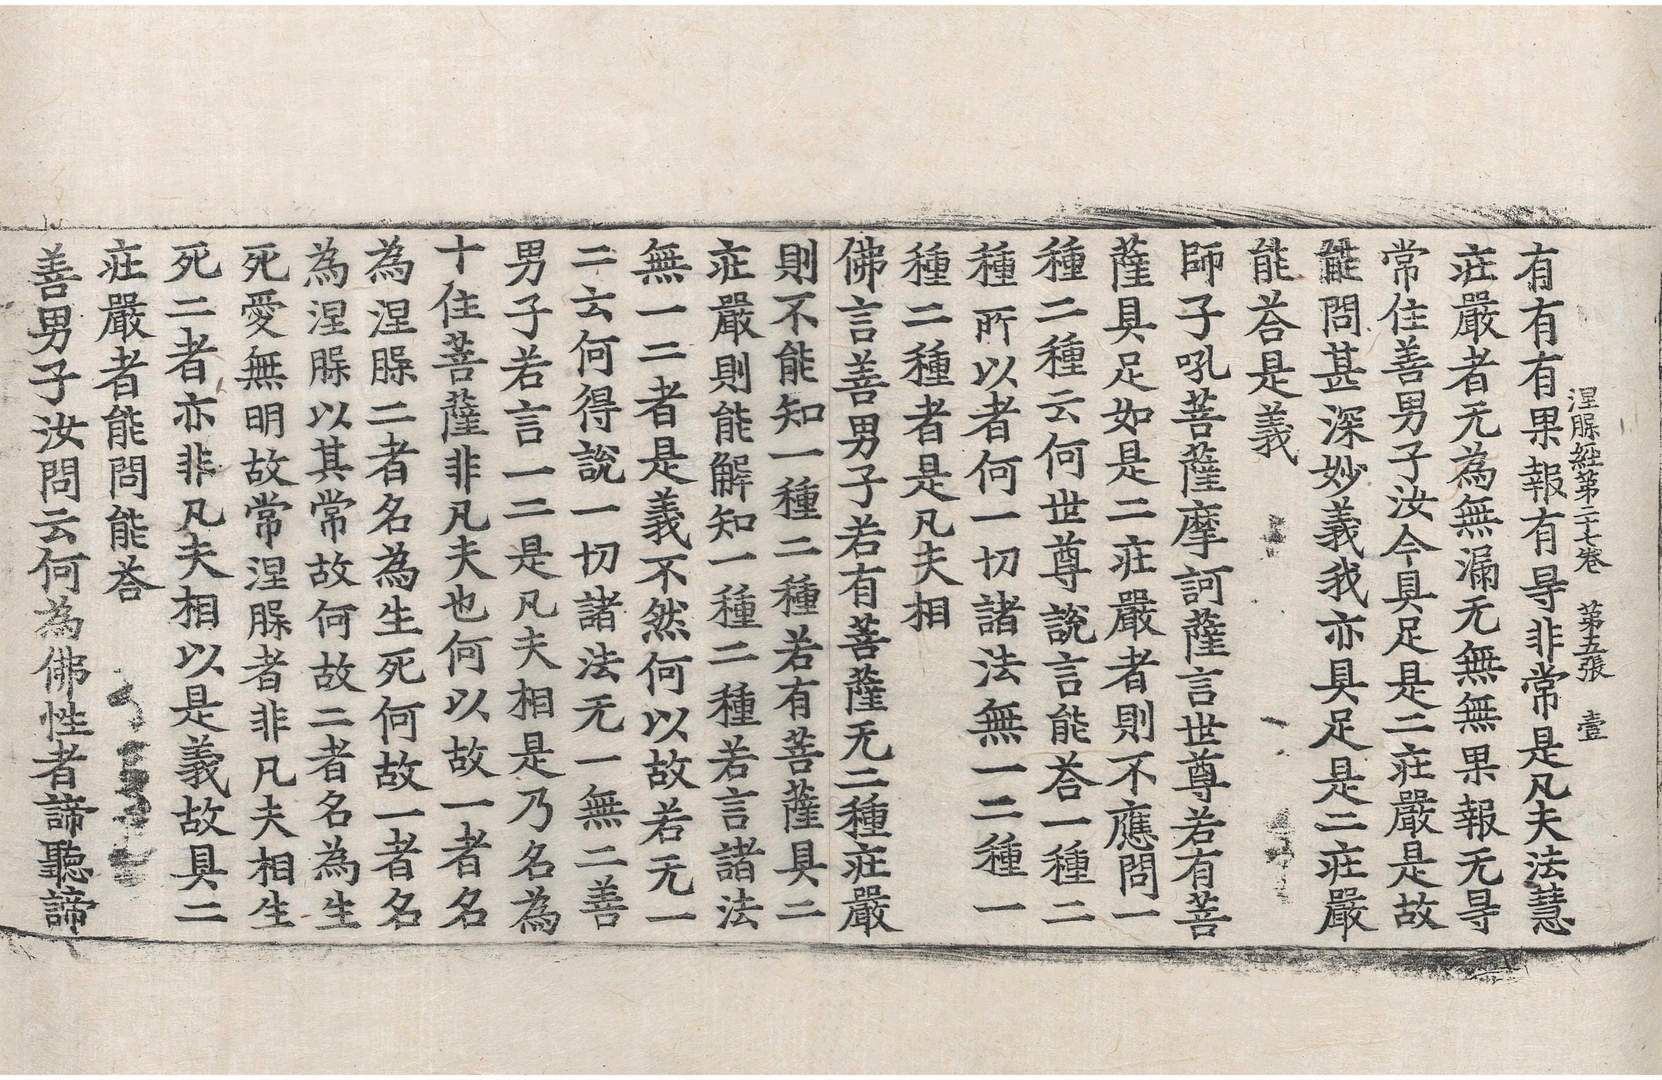 涅脲経第二十七卷　第五張　壹
有有有果報有㝵非常是凡夫法慧
莊嚴者无為無漏无無無果報无㝵
常住善男子汝今具足是二莊嚴是故
能問甚深妙義我亦具足是二莊嚴
能荅是義
師子吼菩薩摩訶薩言世尊若有菩
薩具足如是二莊嚴者則不應問一
種二種云何世尊說言能荅一種二
種所以者何一切諸法無一二種一
種二種者是凡夫相
佛言善男子若有菩薩无二種莊嚴
則不能知一種二種若有菩薩具二
莊嚴則能解知一種二種若言諸法
無一二者是義不然何以故若无一
二云何得說一切諸法无一無二善
男子若言一二是凡夫相是乃名為
十住菩薩非凡夫也何以故一者名
為涅脲二者名為生死何故一者名
為涅脲以其常故何故二者名為生
死愛無明故常涅脲者非凡夫相生
死二者亦非凡夫相以是義故具二
莊嚴者能問能荅
善男子汝問云何為佛性者諦聽諦